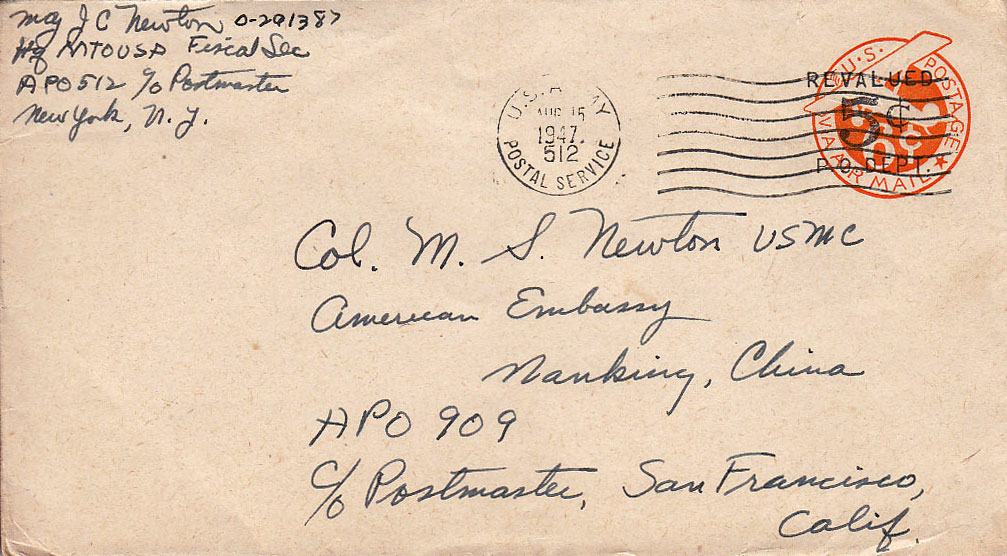 Maj J C Newton O-291387
Hq MTOUSA Fiscal Sec
APO 512 c/o Postmaster
New York, N. Y.
U.S. ARMY
AUG 15
1947
512
POSTAL SERVICE
U.S. POSTAGE
VIA AIR MAIL
REVALUED
5¢
P.O. DEPT.
Col. M. S. Newton USMC
American Embassy
Nanking, China
APO 909
c/o Postmaster, San Francisco,
Calif.